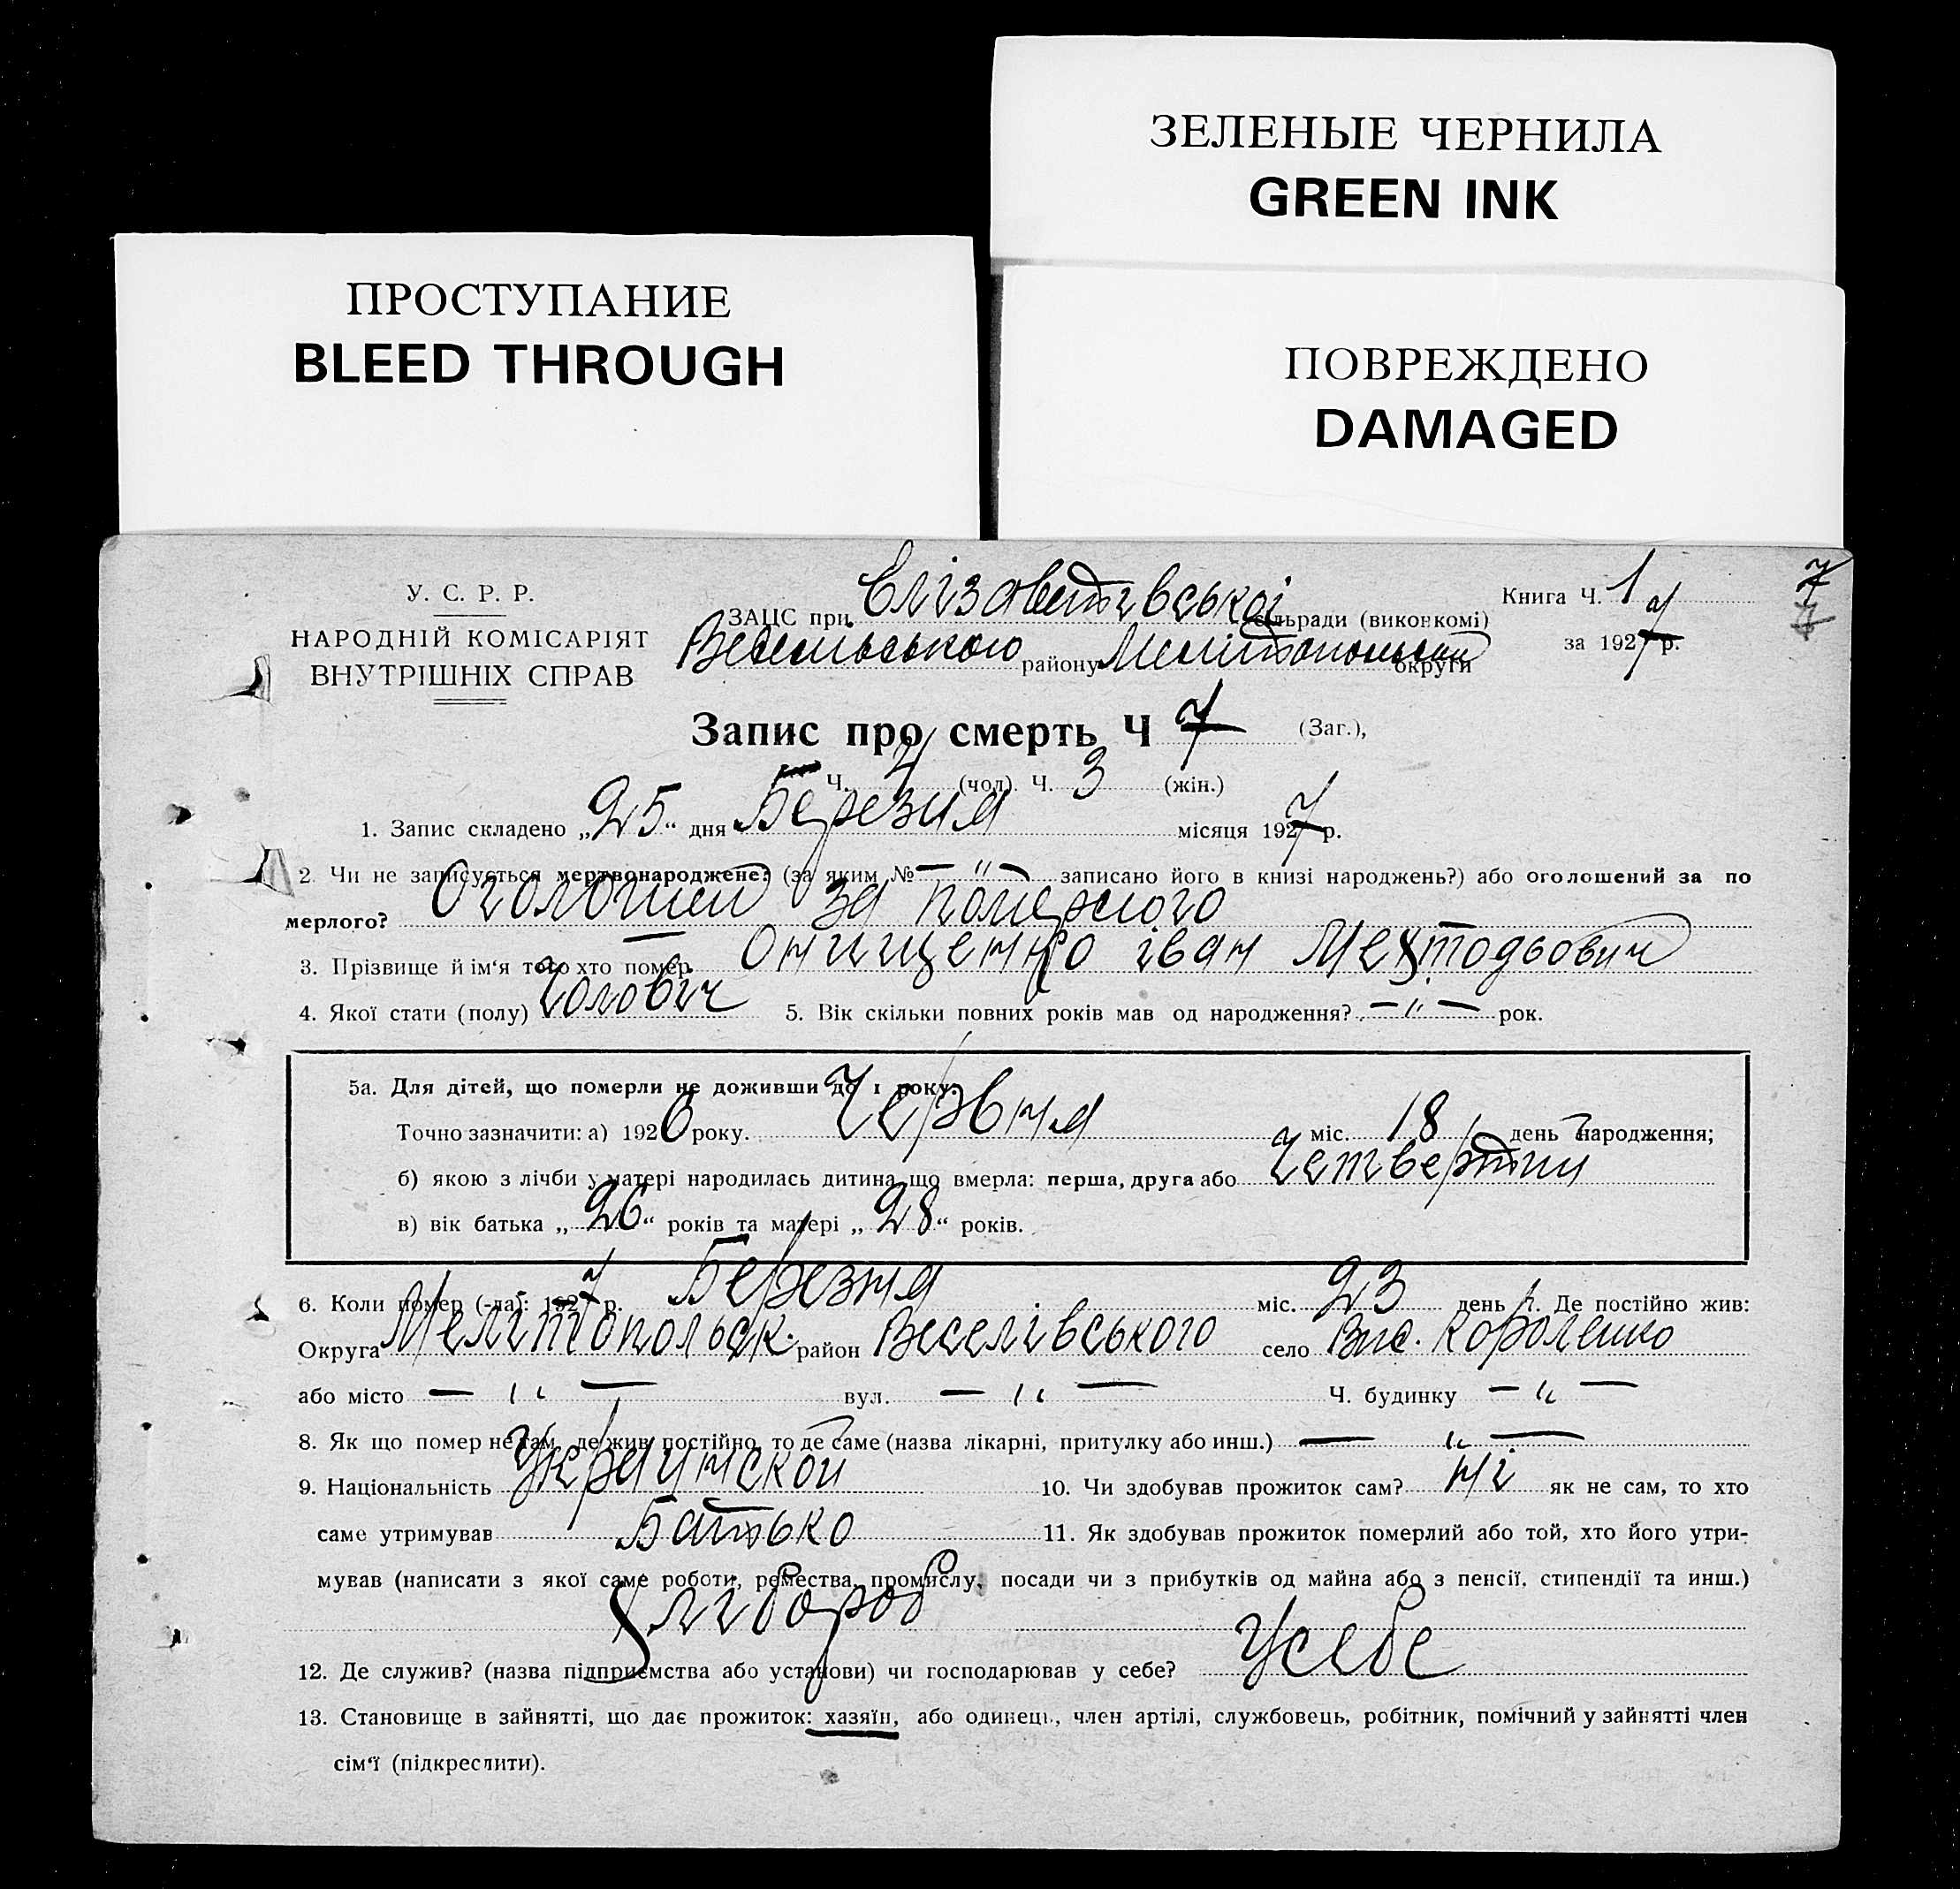 ЗЕЛЕНЫЕ ЧЕРНИЛА
GREEN INK
ПРОСТУПАНИЕ
BLEED THROUGH
ПОВРЕЖДЕНО
DAMAGED
У. С. Р. Р.
НАРОДНІЙ КОМІСАРІЯТ
ВНУТРІШНІХ СПРАВ
ЗАЦС при Єлізаветівської сільради (виконкомі)
Веселівського району Мелітопольський округи
Книга Ч. 1 7
за 1927 р.
7
7
Запис про смерть Ч 7 (Заг.),
Ч. 4 (чол). Ч. 3 (жін.)
1. Запис складено „25“ дня Березня місяця 1927 р.
2. Чи не записується мертвонароджене? (за яким № — " — записано його в книзі народжень?) або оголошений за по
мерлого? Оголошен за померлого
3. Прізвище й ім'я того хто помер — Онищенко іван Мехтодьович
4. Якої стати (полу) Чоловіч 5. Вік скільки повних років мав од народження? — " — рок.
5а. Для дітей, що померли не доживши до 1 року:
Точно зазначити: а) 1926 року. Червня міс. 18 день народження;
б) якою з лічби у матері народилась дитина що вмерла: перша, друга або четвертий
в) вік батька „26“ років та матері „28“ років.
6. Коли помер (-ла): 1927 р. Березня міс. 23 день 7. Де постійно жив:
Округа Мелітопольськ. район Веселівського село Вис. Короленко
або місто — " — вул. — " — Ч. будинку — " —
8. Як що помер не там, де жив постійно, то де саме (назва лікарні, притулку або инш.) — " —
9. Національність Украинской 10. Чи здобував прожиток сам? ні як не сам, то хто
саме утримував Батько 11. Як здобував прожиток померлий або той, хто його утри-
мував (написати з якої саме роботи, ремества, промислу, посади чи з прибутків од майна або з пенсії, стипендії та инш.)
Хлібороб
12. Де служив? (назва підприємства або установи) чи господарював у себе? Усебе
13. Становище в зайнятті, що дає прожиток: хазяїн, або одинець, член артілі, службовець, робітник, помічний у зайнятті член
сім'ї (підкреслити).